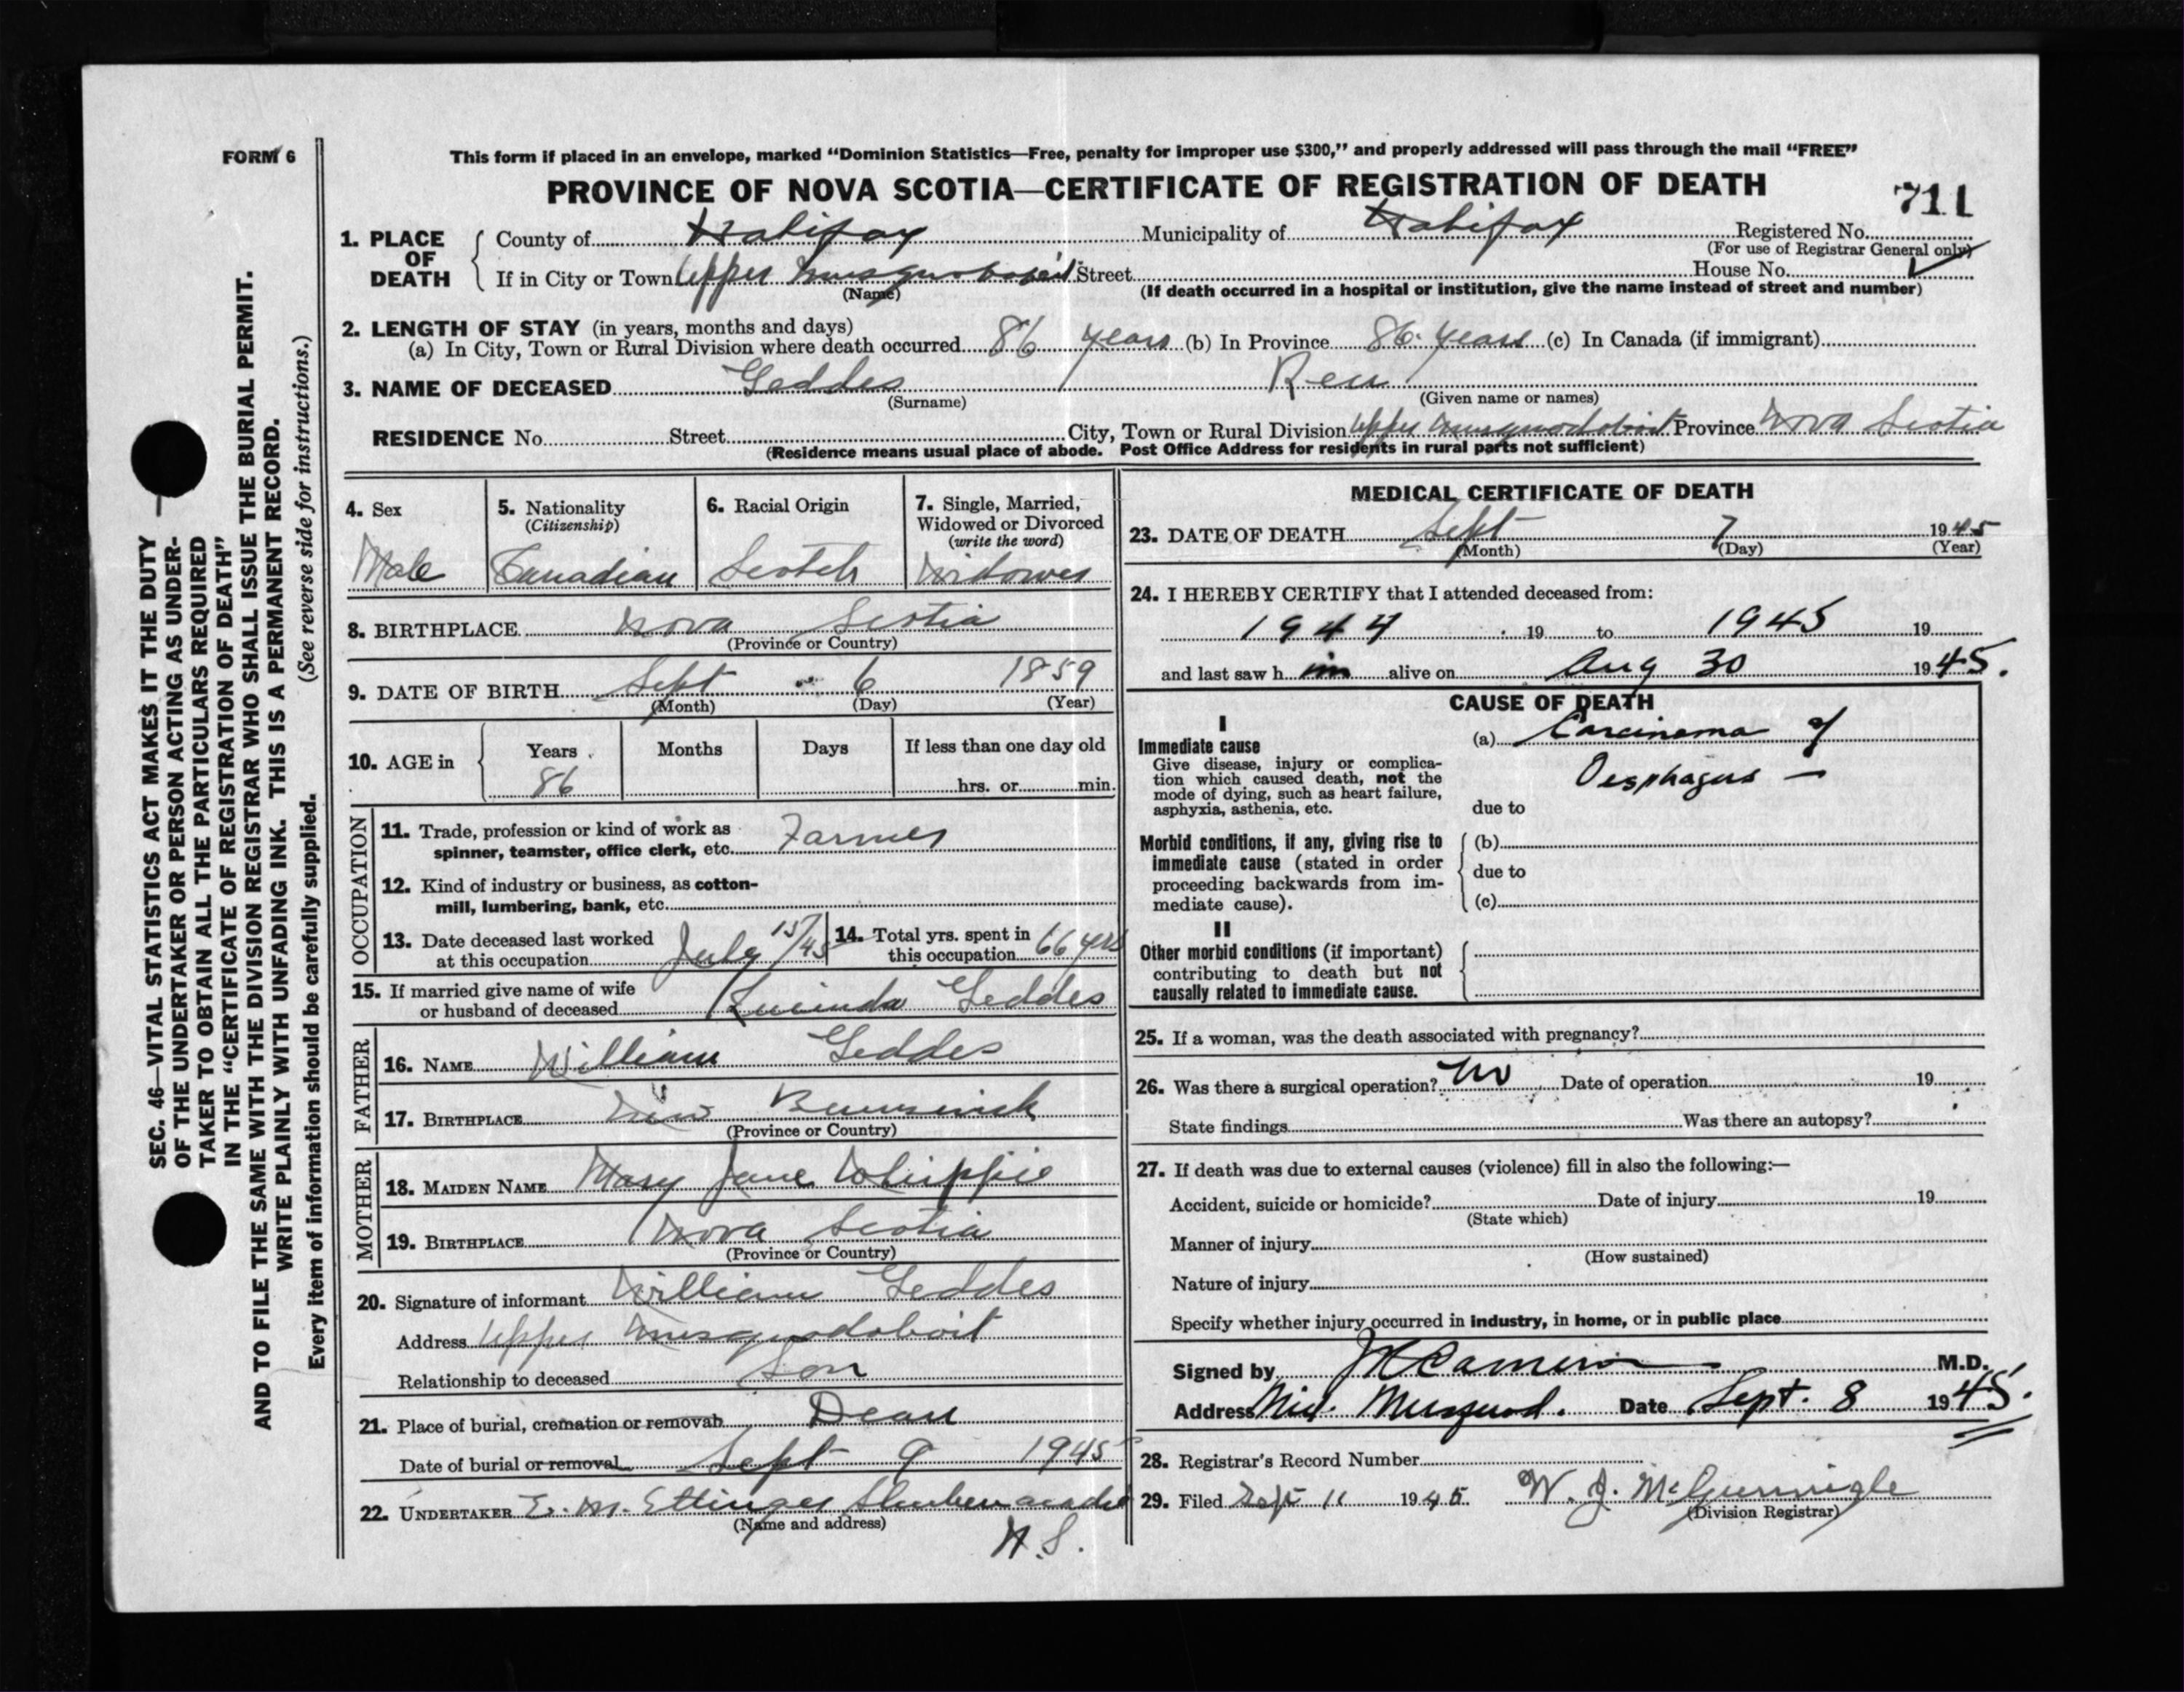 FORM 6
This form if placed in an envelope, marked "Dominion Statistics—Free, penalty for improper use $300," and properly addressed will pass through the mail "FREE"
PROVINCE OF NOVA SCOTIA—CERTIFICATE OF REGISTRATION OF DEATH
711
1. PLACE OF DEATH
County of Halifax Municipality of Halifax Registered No.
(For use of Registrar General only)
If in City or Town Upper Musquodoboit Street House No.
(Name) (If death occurred in a hospital or institution, give the name instead of street and number)
2. LENGTH OF STAY (in years, months and days)
(a) In City, Town or Rural Division where death occurred 86 years (b) In Province 86 years (c) In Canada (if immigrant)
3. NAME OF DECEASED Geddes
(Surname) (Given name or names)
RESIDENCE No. Street City, Town or Rural Division Upper Musquodoboit Province Nova Scotia
(Residence means usual place of abode. Post Office Address for residents in rural parts not sufficient)
4. Sex
Male
5. Nationality
(Citizenship)
Canadian
6. Racial Origin
Scotch
7. Single, Married,
Widowed or Divorced
(write the word)
Widower
8. BIRTHPLACE Nova Scotia
(Province or Country)
9. DATE OF BIRTH Sept 6 1859
(Month) (Day) (Year)
10. AGE in Years Months Days If less than one day old
86 hrs. or min.
OCCUPATION
11. Trade, profession or kind of work as
spinner, teamster, office clerk, etc. Farmer
12. Kind of industry or business, as cotton-
mill, lumbering, bank, etc.
13. Date deceased last worked
at this occupation July 15/45
14. Total yrs. spent in
this occupation 66 yrs
15. If married give name of wife
or husband of deceased Lucinda Geddes
FATHER
16. NAME William Geddes
17. BIRTHPLACE New Brunswick
(Province or Country)
MOTHER
18. MAIDEN NAME Mary Jane Whippie
19. BIRTHPLACE Nova Scotia
(Province or Country)
20. Signature of informant William Geddes
Address Upper Musquodoboit
Relationship to deceased Son
21. Place of burial, cremation or removal Dean
Date of burial or removal Sept 9 1945
22. UNDERTAKER E. M. Ettinger Shubenacadie
(Name and address)
N.S.
MEDICAL CERTIFICATE OF DEATH
23. DATE OF DEATH Sept 7 1945
(Month) (Day) (Year)
24. I HEREBY CERTIFY that I attended deceased from:
1944 19 to 1945 19
and last saw h im alive on Aug 30 1945.
CAUSE OF DEATH
I
Immediate cause
Give disease, injury or complica-
tion which caused death, not the
mode of dying, such as heart failure,
asphyxia, asthenia, etc.
(a) Carcinoma of
Oesphagus —
due to
Morbid conditions, if any, giving rise to
immediate cause (stated in order
proceeding backwards from im-
mediate cause).
(b)
due to
(c)
II
Other morbid conditions (if important)
contributing to death but not
causally related to immediate cause.
25. If a woman, was the death associated with pregnancy?
26. Was there a surgical operation? No Date of operation 19
State findings Was there an autopsy?
27. If death was due to external causes (violence) fill in also the following:—
Accident, suicide or homicide? Date of injury 19
(State which)
Manner of injury
(How sustained)
Nature of injury
Specify whether injury occurred in industry, in home, or in public place
Signed by Cameron M.D.
Address Mid. Musquod. Date Sept. 8 1945.
28. Registrar's Record Number
29. Filed Sept 11 1945. W. J. McGunnigle
(Division Registrar)
SEC. 46—VITAL STATISTICS ACT MAKES IT THE DUTY
OF THE UNDERTAKER OR PERSON ACTING AS UNDER-
TAKER TO OBTAIN ALL THE PARTICULARS REQUIRED
IN THE "CERTIFICATE OF REGISTRATION OF DEATH"
AND TO FILE THE SAME WITH THE DIVISION REGISTRAR WHO SHALL ISSUE THE BURIAL PERMIT.
WRITE PLAINLY WITH UNFADING INK. THIS IS A PERMANENT RECORD.
Every item of information should be carefully supplied. (See reverse side for instructions.)